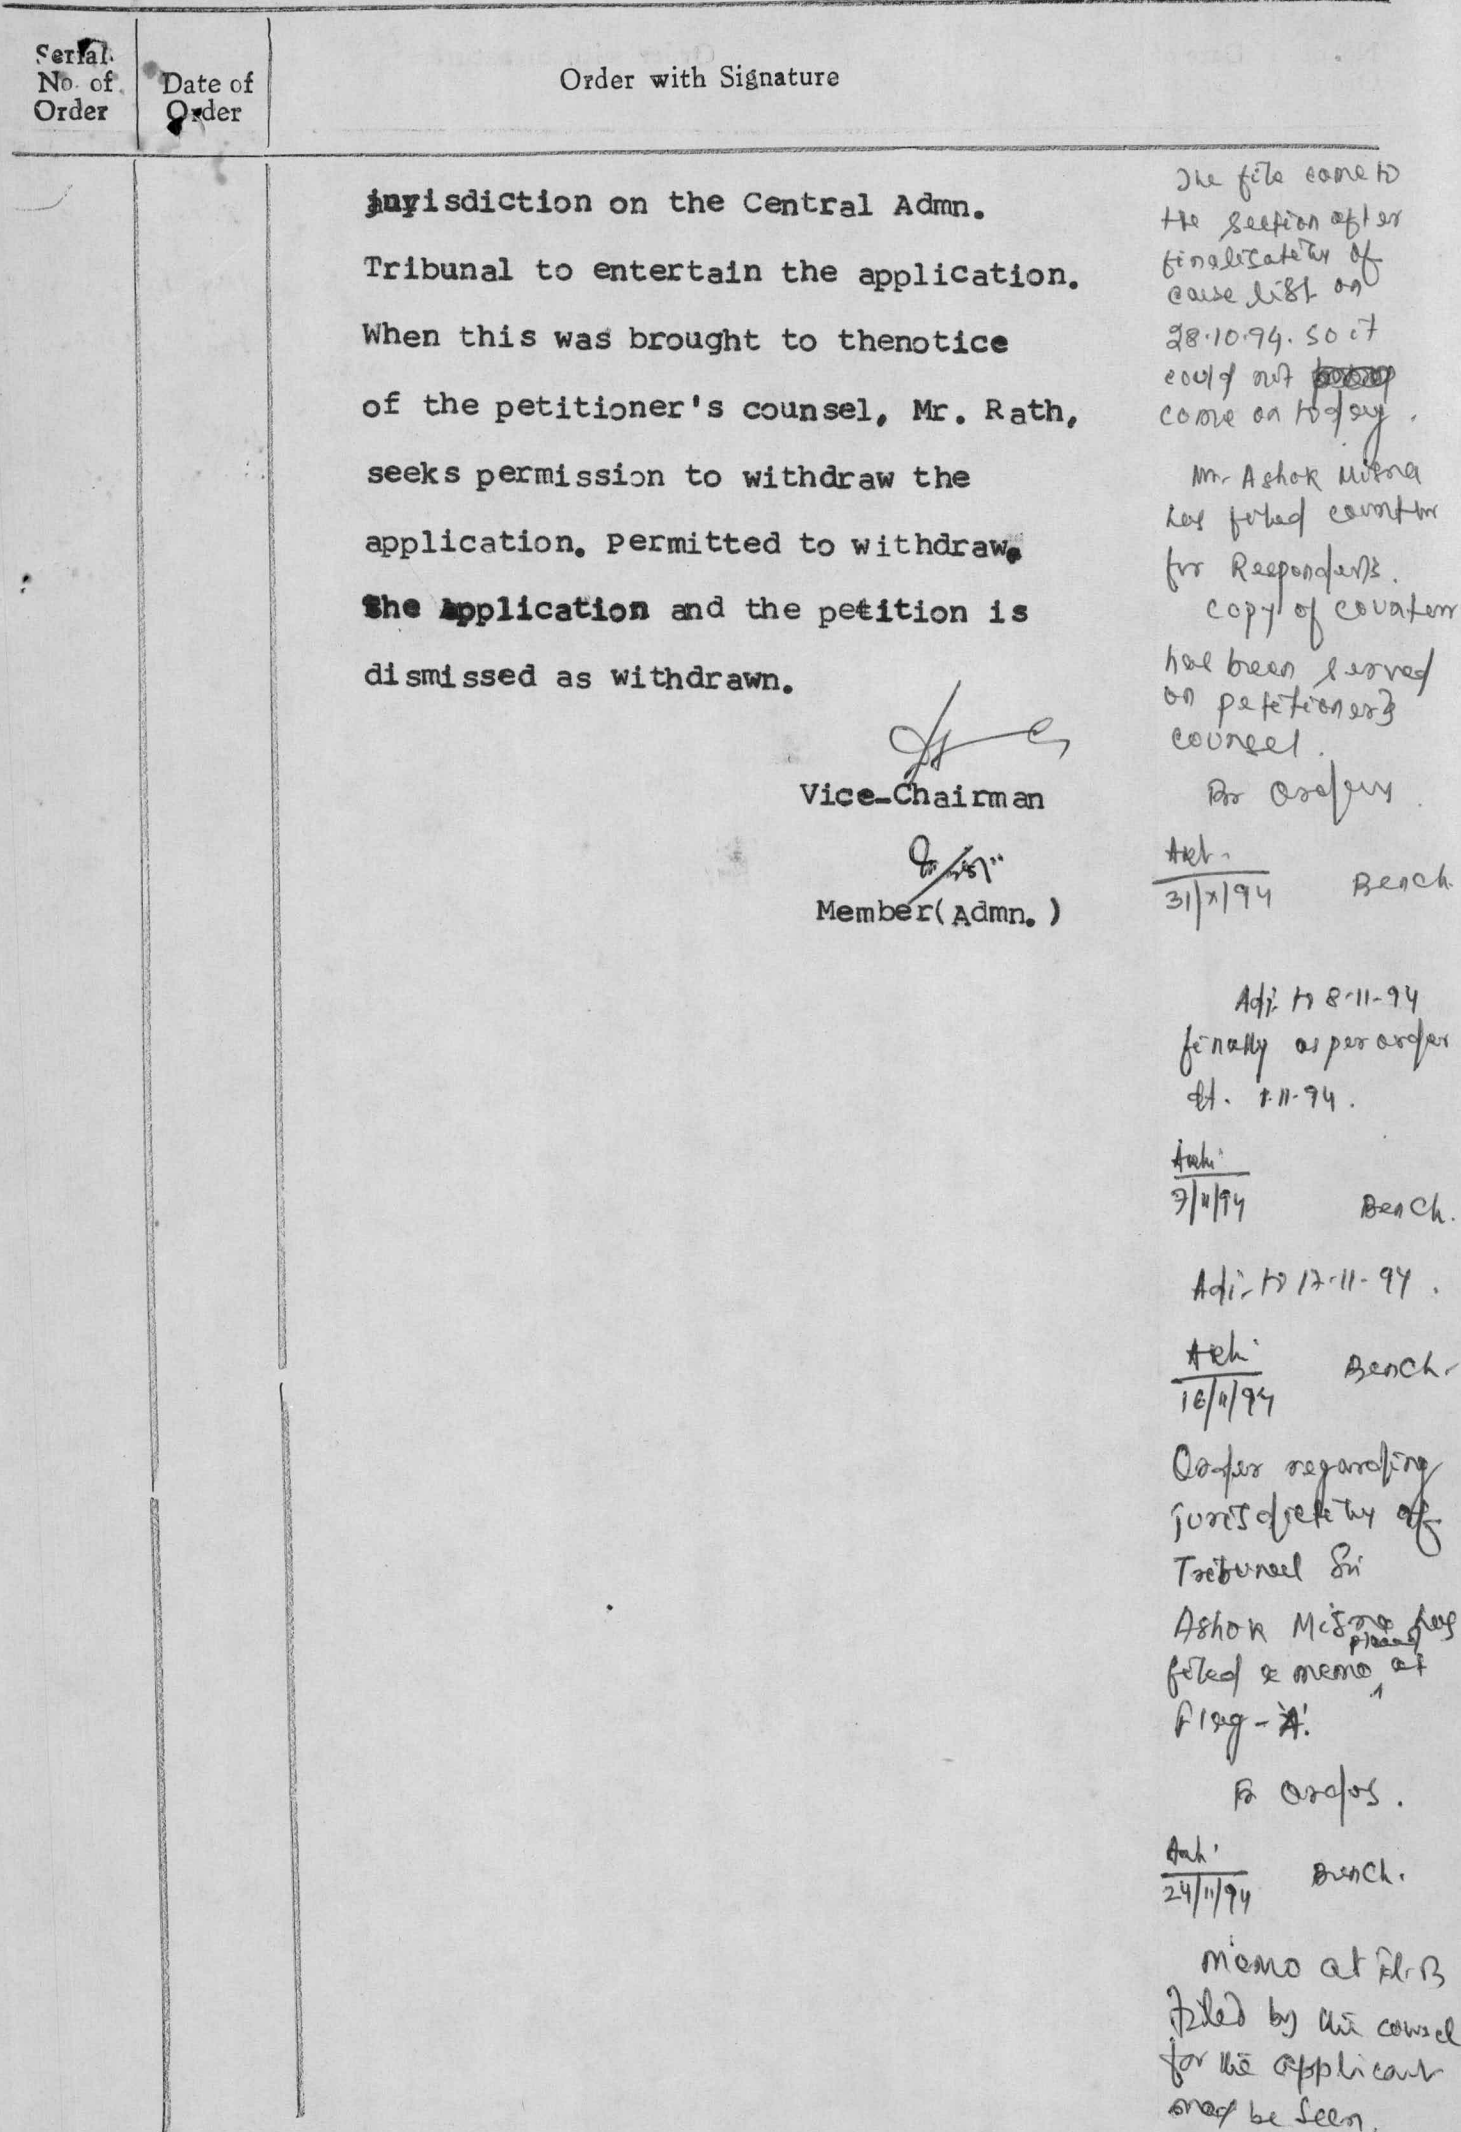 Serial
No. of
Order
Date of
Order
Order with Signature
jurisdiction on the Central Admn.
Tribunal to entertain the application.
When this was brought to thenotice
of the petitioner's counsel, Mr. Rath,
seeks permission to withdraw the
application. Permitted to withdraw.
The Application and the petition is
dismissed as withdrawn.
Vice-Chairman
Member(Admn.)
The file came to
the section after
finalisation of
cause list on
28.10.94. So it
could not
come on today.
Mr. Ashok Misra
has filed counter
for Respondents.
copy of counter
has been served
on petitioner's
counsel.
For Orders
31/X/94 Bench.
Adj. to 8-11-94
finally as per order
dt. 1-11-94.
7/11/94 Bench.
Adj. to 17-11-94.
16/11/94 Bench.
Order regarding
jurisdiction of
Tribunal Sri
Ashok Misra has
filed a memo placed at
Flag-'A'.
For Orders.
24/11/94 Bench.
Memo at Fl-B
Filed by the counsel
for the applicant
may be seen.